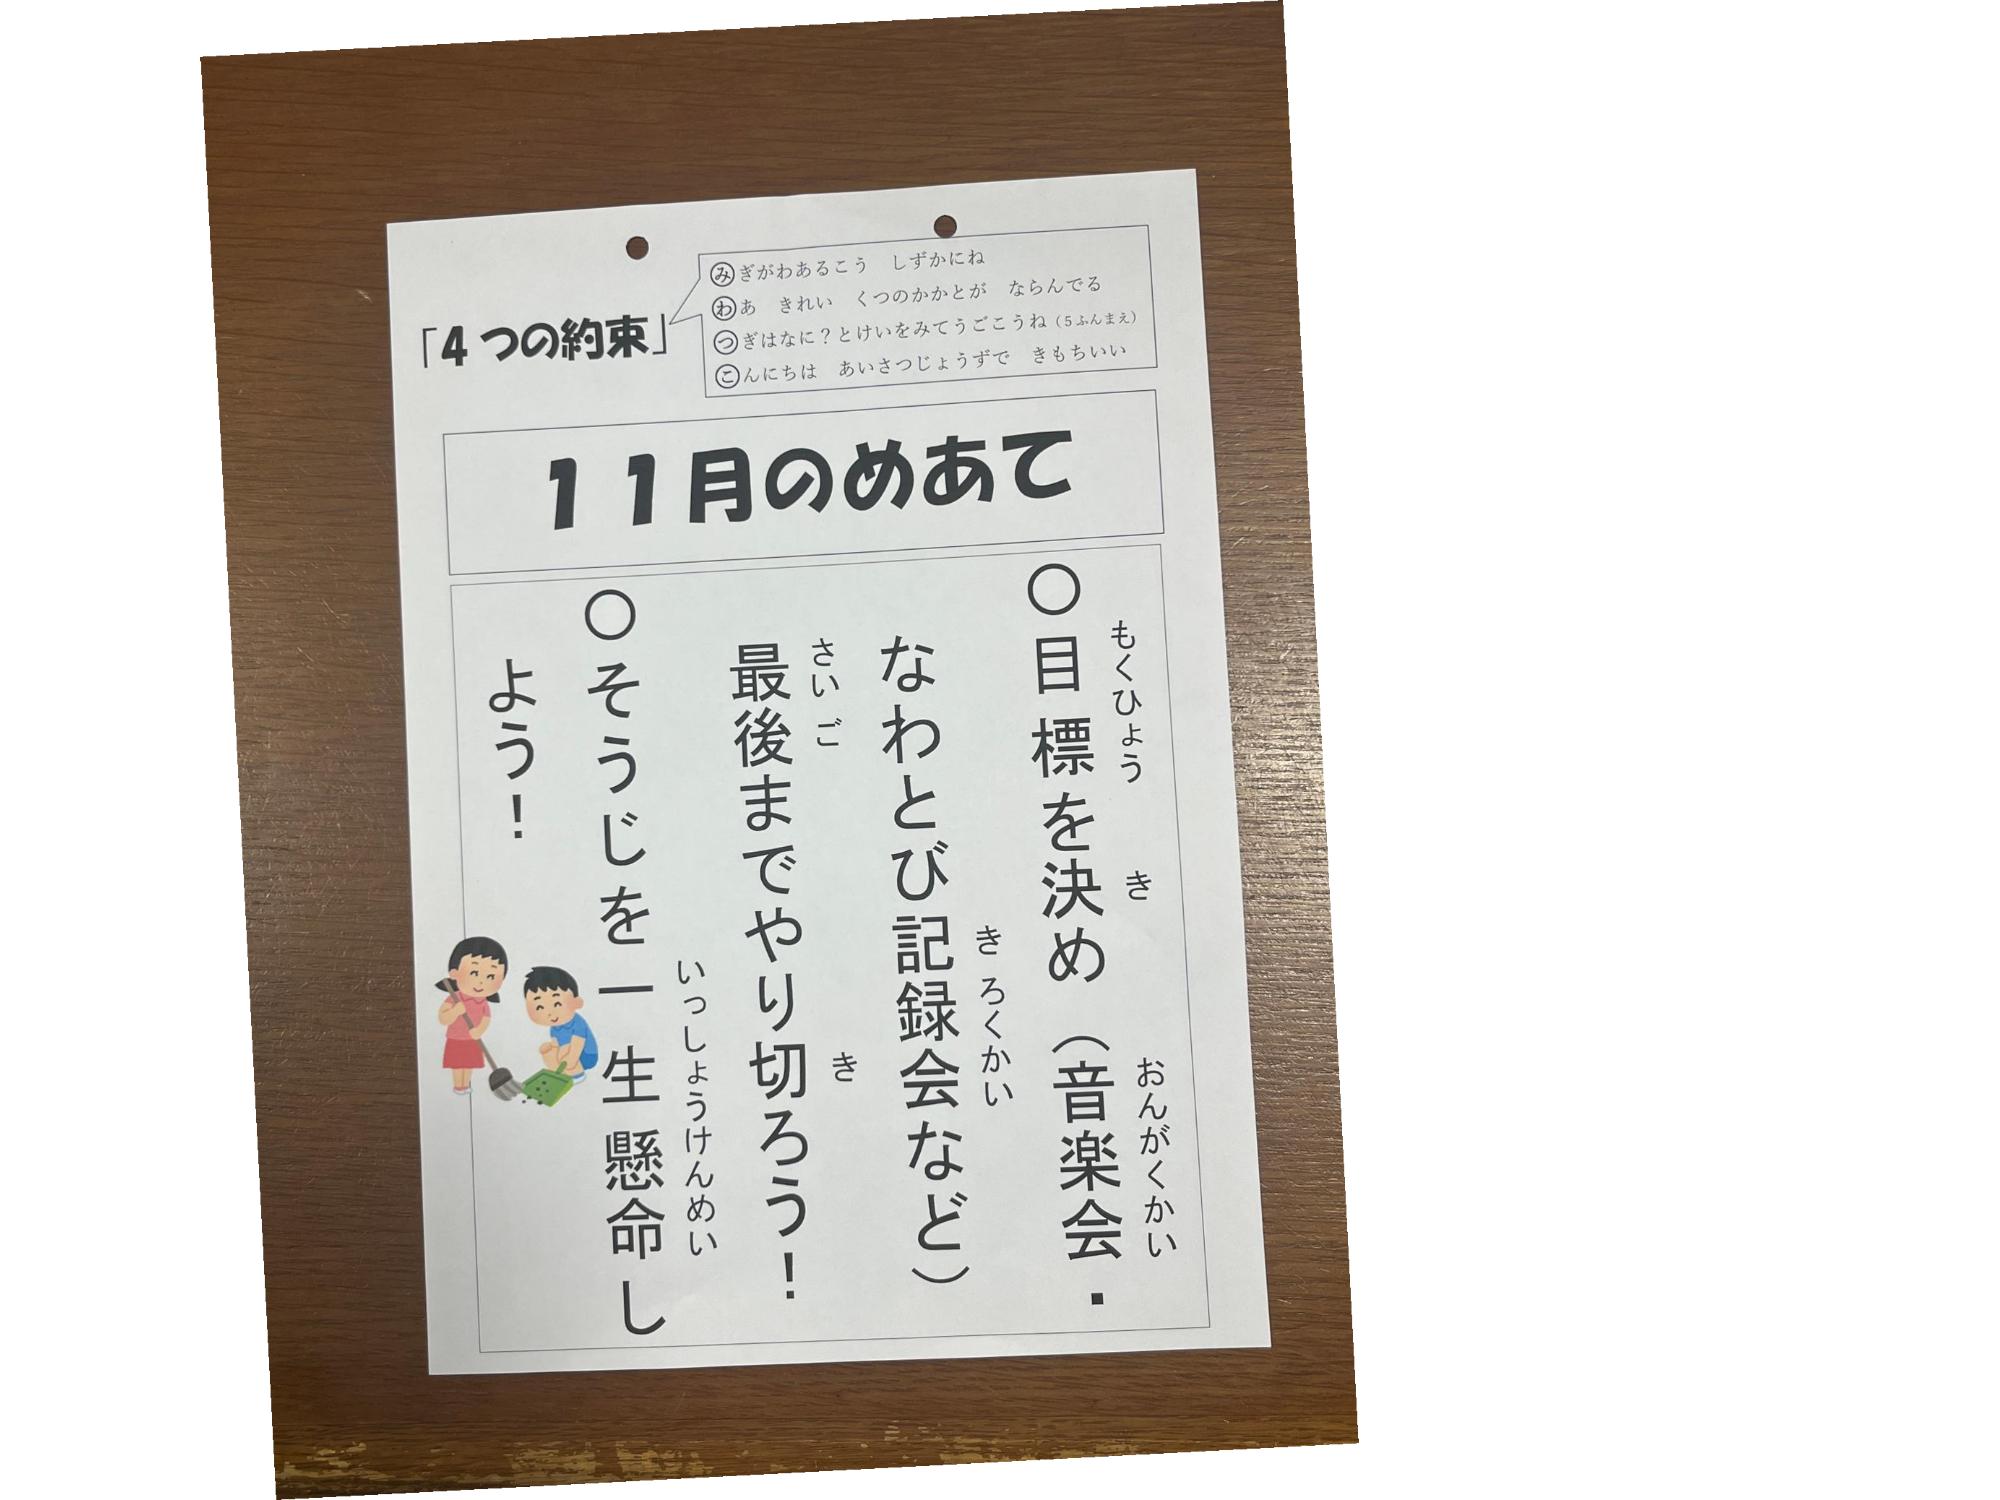 「4つの約束」
みぎがわあるこう　しずかにね
わあ　きれい　くつのかかとが　ならんでる
つぎはなに？とけいをみてうごこうね（5ふんまえ）
こんにちは　あいさつじょうずで　きもちいい
11月のめあて
もくひょう　き　おんがくかい
○目標を決め（音楽会・
きろくかい
なわとび記録会など）
さいご　き
最後までやり切ろう！
いっしょうけんめい
○そうじを一生懸命し
よう！